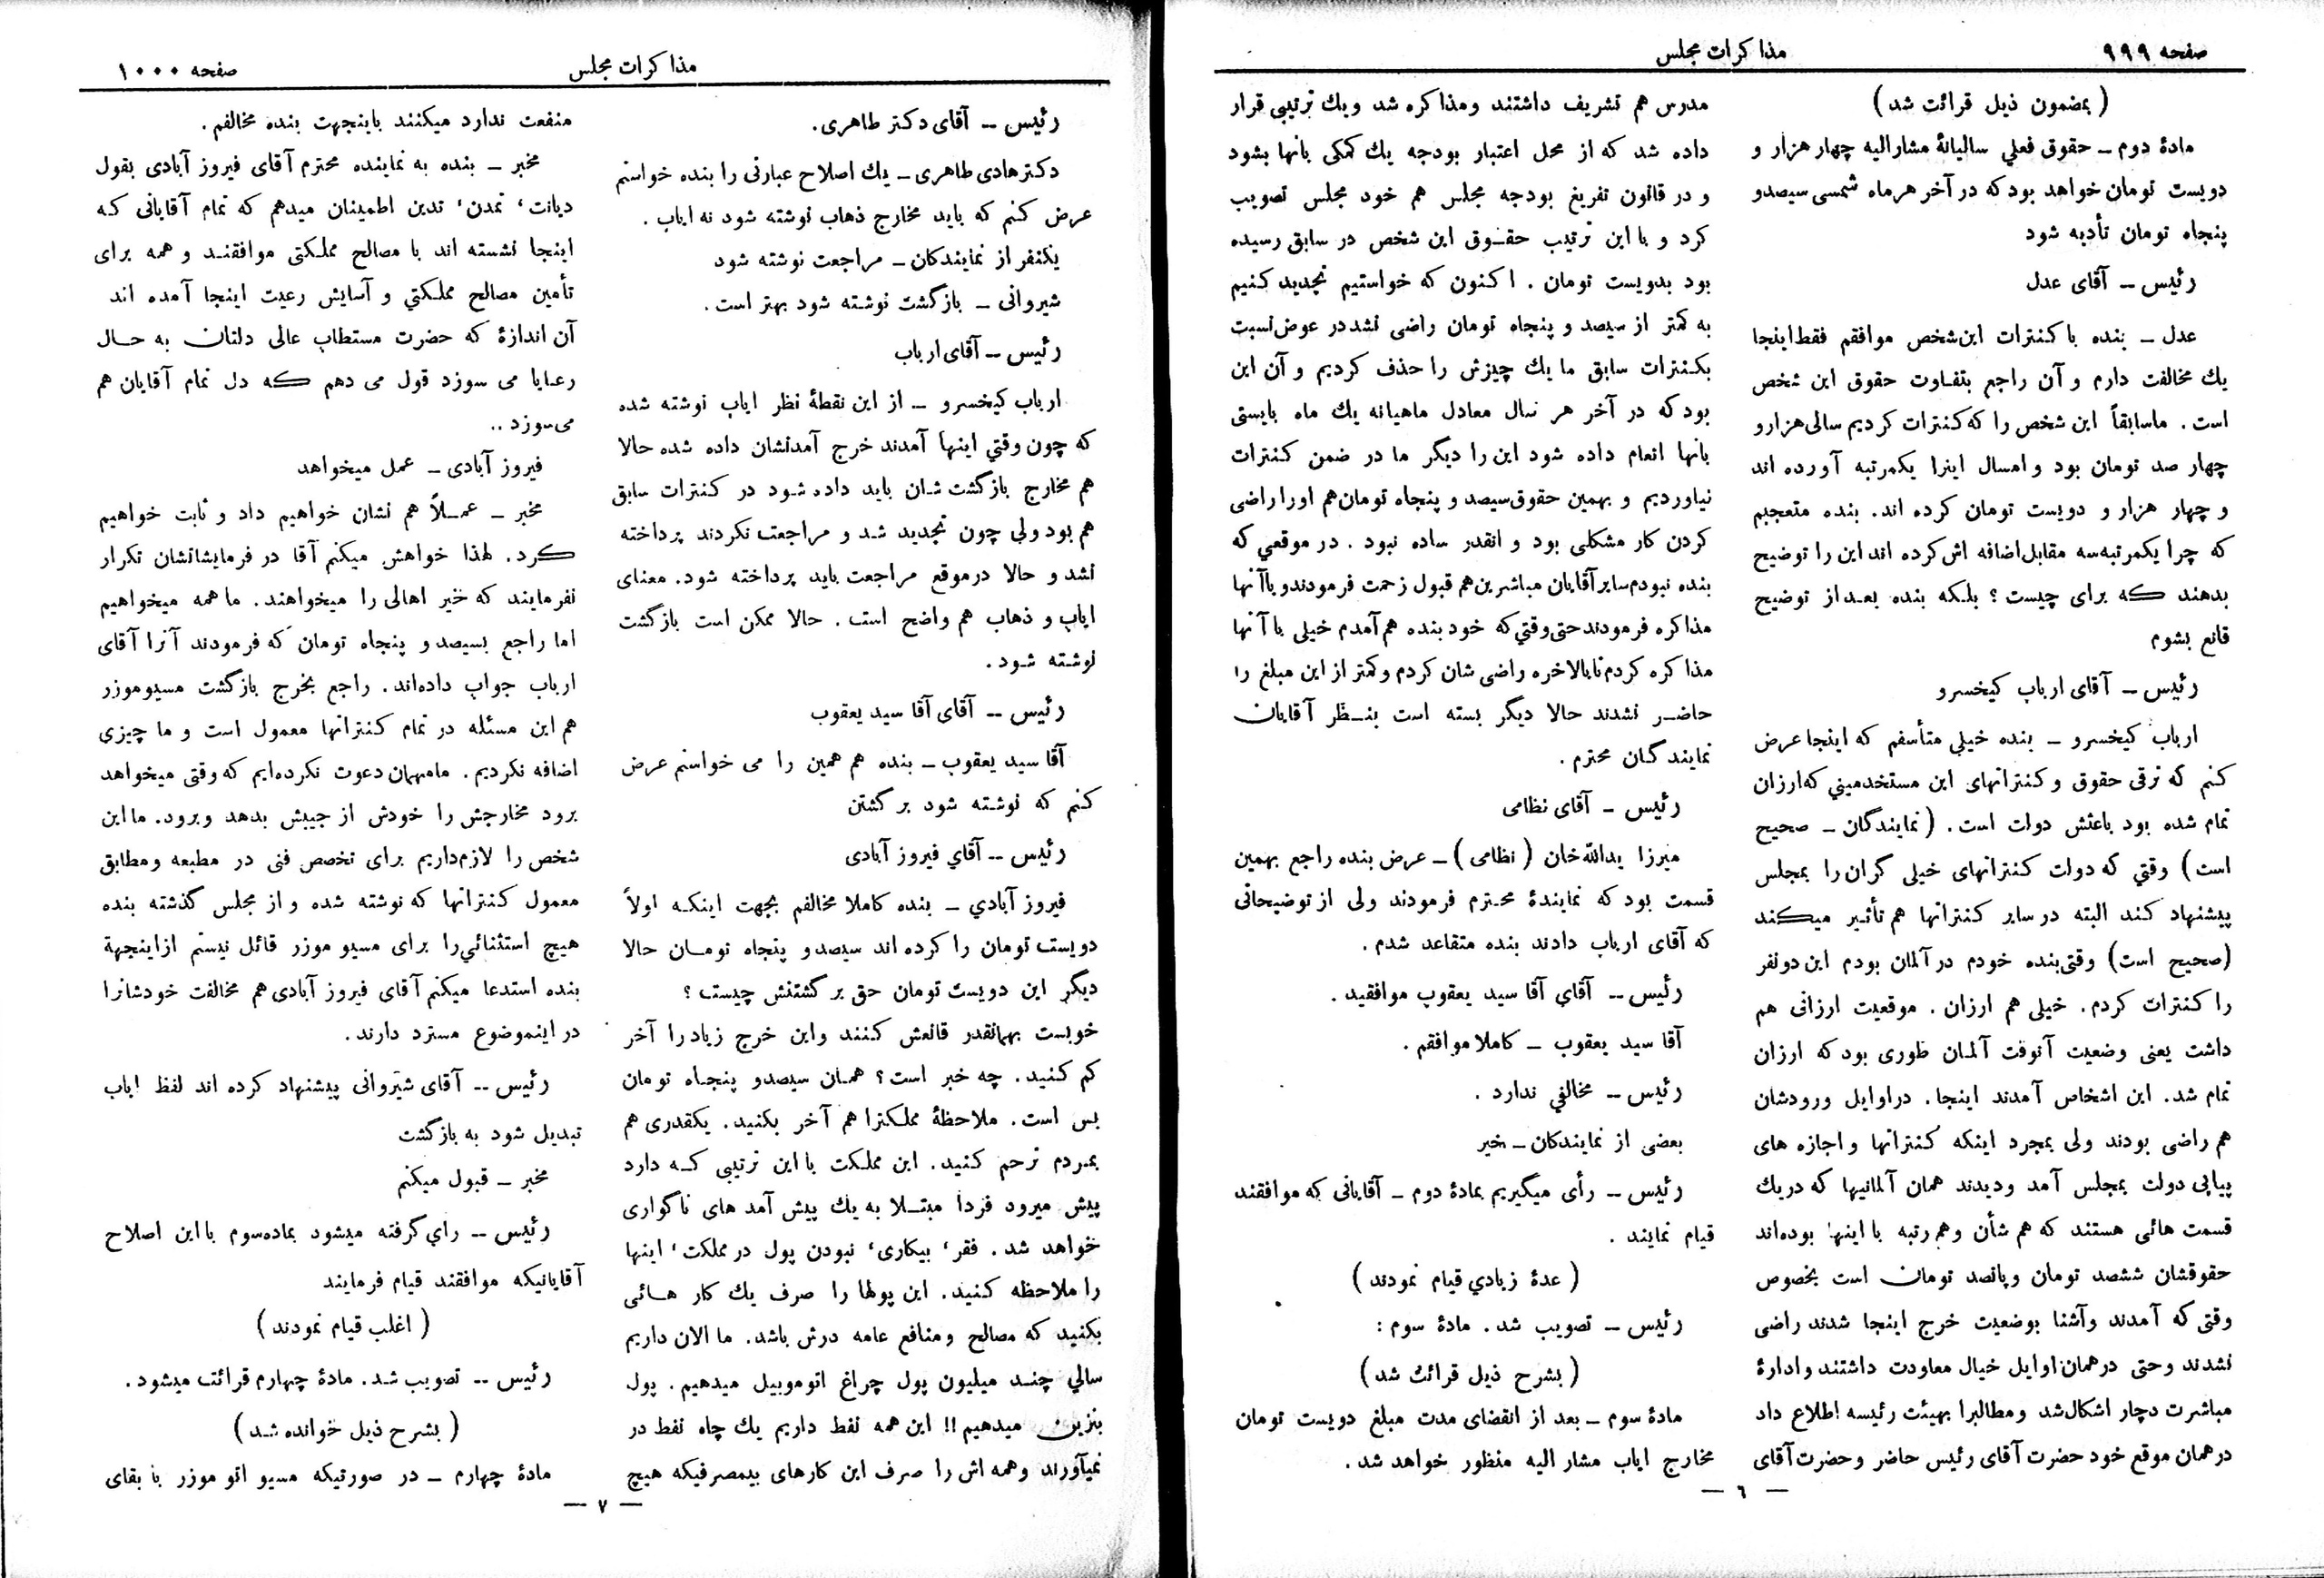 صفحه ۹۹۹
مذاکرات مجلس
(بمضمون ذیل قرائت شد)
مادهٔ دوم ــ حقوق فعلي سالیانهٔ مشارالیه چهار هزار و
دویست تومان خواهد بود که در آخر هر ماه شمسی سیصدو
پنجاه تومان تأدیه شود
رئیس ــ آقای عدل
عدل ــ بنده با کنترات این شخص موافقم فقط اینجا
یك مخالفت دارم و آن راجع بتفاوت حقوق این شخص
است . ماسابقاً این شخص را که کنترات کردیم سالی هزارو
چهار صد تومان بود و امسال اینرا یکمرتبه آورده اند
و چهار هزار و دویست تومان کرده اند. بنده متعجبم
که چرا یکمرتبه سه مقابل اضافه اش کرده اند این را توضیح
بدهند که برای چیست ؟ بلکه بنده بعد از توضیح
قانع بشوم
رئیس ــ آقای ارباب کیخسرو
ارباب کیخسرو ــ بنده خیلی متأسفم که اینجا عرض
کنم که ترقی حقوق و کنتراتهای این مستخدمیني که ارزان
تمام شده بود باعثش دولت است. (نمایندگان ــ صحیح
است) وقتي که دولت کنتراتهای خیلی گران را بمجلس
پیشنهاد کند البته در سایر کنتراتها هم تأثیر میکند
(صحیح است) وقتی بنده خودم در آلمان بودم این دونفر
را کنترات کردم. خیلی هم ارزان . موقعیت ارزانی هم
داشت یعنی وضعیت آنوقت آلمان طوری بود که ارزان
تمام شد. این اشخاص آمدند اینجا. در اوایل ورودشان
هم راضی بودند ولی بمجرد اینکه کنتراتها و اجازه های
پیاپی دولت بمجلس آمد ودیدند همان آلمانیها که در یك
قسمت هائی هستند که هم شأن و هم رتبه با اینها بوده‌اند
حقوقشان ششصد تومان و پانصد تومان است بخصوص
وقتی که آمدند و آشنا بوضعیت خرج اینجا شدند راضی
نشدند و حتی در همان اوایل خیال معاودت داشتند و ادارهٔ
مباشرت دچار اشکال شد و مطالبرا بهیئت رئیسه اطلاع داد
در همان موقع خود حضرت آقای رئیس حاضر و حضرت آقای
مدرس هم تشریف داشتند ومذاکره شد و یك ترتیبی قرار
داده شد که از محل اعتبار بودجه یك کمکی بانها بشود
و در قانون تفریغ بودجه مجلس هم خود مجلس تصویب
کرد و با این ترتیب حقوق این شخص در سابق رسیده
بود بدویست تومان . اکنون که خواستیم تجدید کنیم
به کمتر از سیصد و پنجاه تومان راضی نشد در عوض نسبت
بکنترات سابق ما یك چیزش را حذف کردیم و آن این
بود که در آخر هر سال معادل ماهیانه یك ماه بایستی
بانها انعام داده شود این را دیگر ما در ضمن کنترات
نیاوردیم و بهمین حقوق سیصد و پنجاه تومان هم اورا راضی
کردن کار مشکلی بود و انقدر ساده نبود . در موقعی که
بنده نبودم سایر آقایان مباشرین هم قبول زحمت فرمودند و با آنها
مذاکره فرمودند حتی وقتي که خود بنده هم آمدم خیلی با آنها
مذاکره کردم تا بالاخره راضی شان کردم و کمتر از این مبلغ را
حاضر نشدند حالا دیگر بسته است بنظر آقایان
نمایندگان محترم .
رئیس ــ آقای نظامی
میرزا یدالله خان (نظامی) ــ عرض بنده راجع بهمین
قسمت بود که نمایندهٔ محترم فرمودند ولی از توضیحاتی
که آقای ارباب دادند بنده متقاعد شدم.
رئیس ــ آقاي آقا سید یعقوب موافقید.
آقا سید یعقوب ــ کاملا موافقم .
رئیس ــ مخالفي ندارد .
بعضی از نمایندکان ــ خیر
رئیس ــ رأی میگیریم بمادهٔ دوم ــ آقایانی که موافقند
قیام نمایند .
(عدهٔ زیادي قیام نمودند)
رئیس ــ تصویب شد . مادهٔ سوم :
(بشرح ذیل قرائت شد)
مادهٔ سوم ــ بعد از انقضای مدت مبلغ دویست تومان
مخارج ایاب مشار الیه منظور خواهد شد .
— ٦ —
مذاکرات مجلس
صفحه ۱۰۰۰
رئیس ــ آقای دکتر طاهری.
دکتر هادی طاهری ــ یك اصلاح عبارتی را بنده خواستم
عرض کنم که باید مخارج ذهاب نوشته شود نه ایاب .
یکنفر از نمایندکان ــ مراجعت نوشته شود
شیروانی ــ بازگشت نوشته شود بهتر است.
رئیس ــ آقای ارباب
ارباب کیخسرو ــ از این نقطهٔ نظر ایاب نوشته شده
که چون وقتي اینها آمدند خرج آمدنشان داده شده حالا
هم مخارج بازگشت شان باید داده شود در کنترات سابق
هم بود ولی چون تجدید شد و مراجعت نکردند پرداخته
نشد و حالا در موقع مراجعت باید پرداخته شود. معنای
ایاب و ذهاب هم واضح است. حالا ممکن است بازگشت
نوشته شود.
رئیس ــ آقای آقا سید یعقوب
آقا سید یعقوب ــ بنده هم همین را می خواستم عرض
کنم که نوشته شود برگشتن
رئیس ــ آقاي فیروز آبادی
فیروز آبادي ــ بنده کاملا مخالفم بجهت اینکه اولاً
دویست تومان را کرده اند سیصدو پنجاه تومان حالا
دیگر این دویست تومان حق بر گشتنش چیست ؟
خوبست بهمانقدر قانعش کنند و این خرج زیاد را آخر
کم کنید. چه خبر است؟ همان سیصدو پنجاه تومان
بس است. ملاحظهٔ مملکترا هم آخر بکنید. یکقدری هم
بمردم ترحم کنید. این مملکت با این ترتیبی که دارد
پیش میرود فردا مبتلا به یك پیش آمد های ناگواری
خواهد شد . فقر، بیکاری، نبودن پول در مملکت، اینها
را ملاحظه کنید. این پولها را صرف یك کار هائی
بکنید که مصالح ومنافع عامه درش باشد. ما الان داریم
سالي چند میلیون پول چراغ اتوموبیل میدهیم. پول
بنزین میدهیم!! این همه نفط داریم یك چاه نفط در
نمیآورند و همه اش را صرف این کارهای بیمصرفیکه هیچ
منفعت ندارد میکنند باینجهت بنده مخالفم.
مخبر ــ بنده به نماینده محترم آقای فیروز آبادی بقول
دیانت، تمدن، تدین اطمینان میدهم که تمام آقایانی که
اینجا نشسته اند با مصالح مملکتی موافقند و همه برای
تأمین مصالح مملکتي و آسایش رعیت اینجا آمده اند
آن اندازهٔ که حضرت مستطاب عالی دلتان به حال
رعایا می سوزد قول می دهم که دل تمام آقایان هم
می‌سوزد ..
فیروز آبادی ــ عمل میخواهد
مخبر ــ عملاً هم نشان خواهیم داد و ثابت خواهیم
کرد. لهذا خواهش میکنم آقا در فرمایشاتشان تکرار
نفرمایند که خیر اهالی را میخواهند. ما همه میخواهیم
اما راجع بسیصد و پنجاه تومان که فرمودند آنرا آقای
ارباب جواب داده‌اند. راجع بخرج بازگشت مسیو موزر
هم این مسئله در تمام کنتراتها معمول است و ما چیزی
اضافه نکردیم. مامهمان دعوت نکرده‌ایم که وقتی میخواهد
برود مخارجش را خودش از جیبش بدهد و برود. ما این
شخص را لازم‌داریم برای تخصص فنی در مطبعه ومطابق
معمول کنتراتها که نوشته شده و از مجلس گذشته بنده
هیچ استثنائي را برای مسیو موزر قائل نیستم از اینجهة
بنده استدعا میکنم آقای فیروز آبادی هم مخالفت خودشانرا
در اینموضوع مسترد دارند.
رئیس ــ آقای شیروانی پیشنهاد کرده اند لفظ ایاب
تبدیل شود به بازگشت
مخبر ــ قبول میکنم
رئیس ــ رأي گرفته میشود بماده سوم با این اصلاح
آقایانیکه موافقند قیام فرمایند
(اغلب قیام نمودند)
رئیس ــ تصویب شد. مادهٔ چهارم قرائت میشود.
(بشرح ذیل خوانده شد)
مادهٔ چهارم ــ در صورتیکه مسیو اتو موزر با بقای
— ۷ —